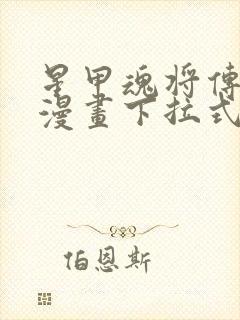 星甲魂將傳
漫畫下拉式
伯恩斯